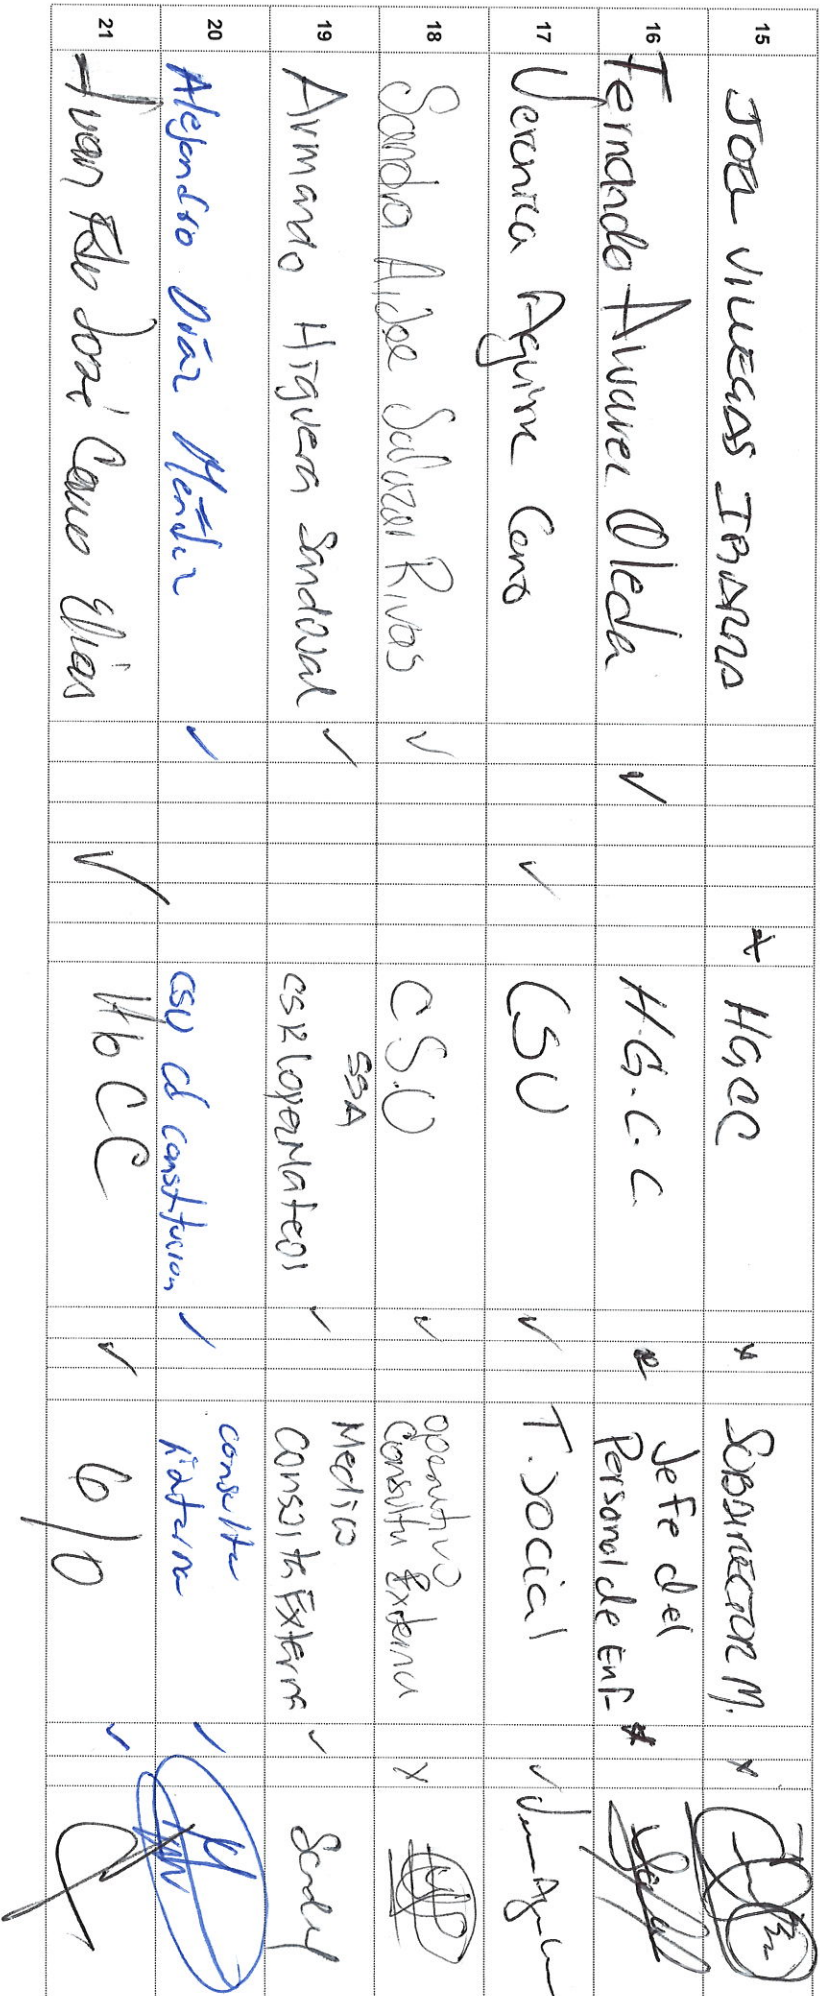 15 JOEL VILLEGAS IBARRA ✗ HGCC ✗ SUBDIRECTOR M. ✗
16 Fernando Alvarez Ojeda ✓ H.G.C.C. Jefe del
Personal de Enf-
17 Veronica Aguirre Cano ✓ CSU ✓ T. Social ✓
18 Sandra Aidee Salazar Rivas ✓ C.S.U ✓ operativo
Consulta Externa ✗
19 Armando Higuera Sandoval ✓ SSA
CSR Lopez Mateos ✓ Medico
Consulta Externa ✓
20 Alejandro Díaz Méndez ✓ CSU Cd Constitucion ✓ consulta
✓
21 Juan José ✓ CC ✓ ✓